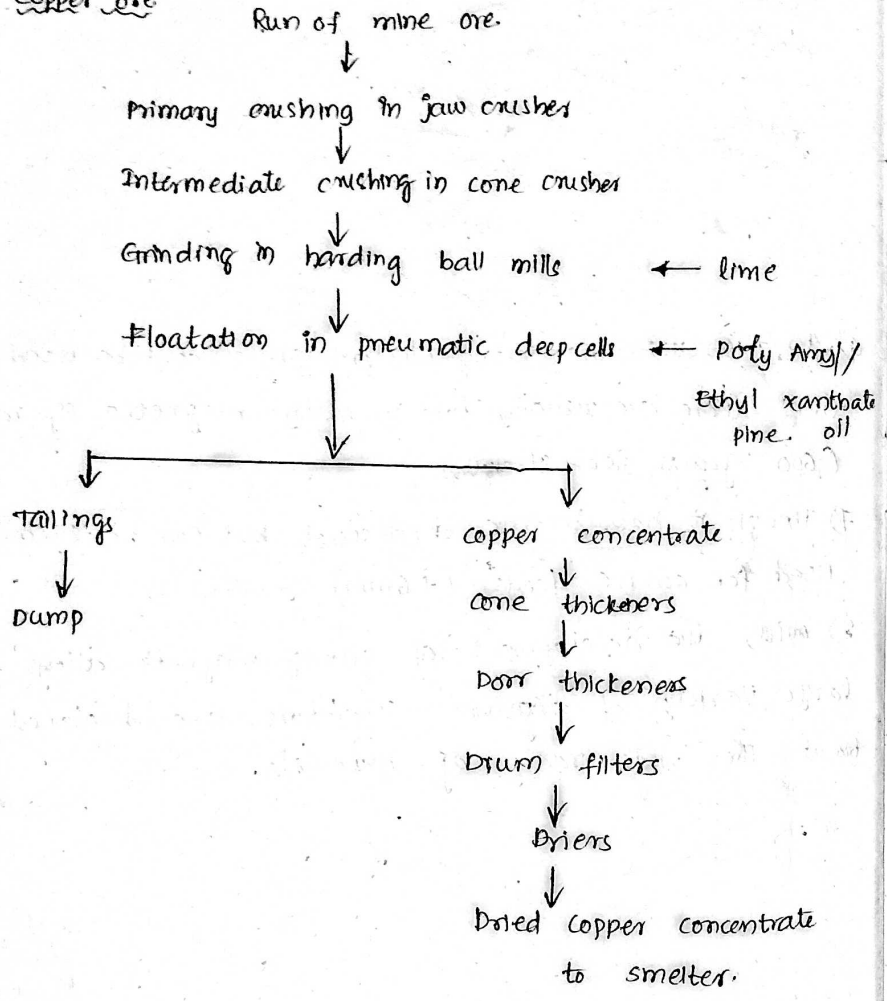 Copper ore
Run of mine ore.
Primary crushing in jaw crusher
Intermediate crushing in cone crusher
Grinding in harding ball mills ← lime
Floatation in pneumatic deep cells ← Poty Amyl/
Ethyl xanthate
pine. oil
Tailings
Dump
copper concentrate
cone thickeners
Dorr thickeners
Drum filters
Driers
Dried copper concentrate
to smelter.